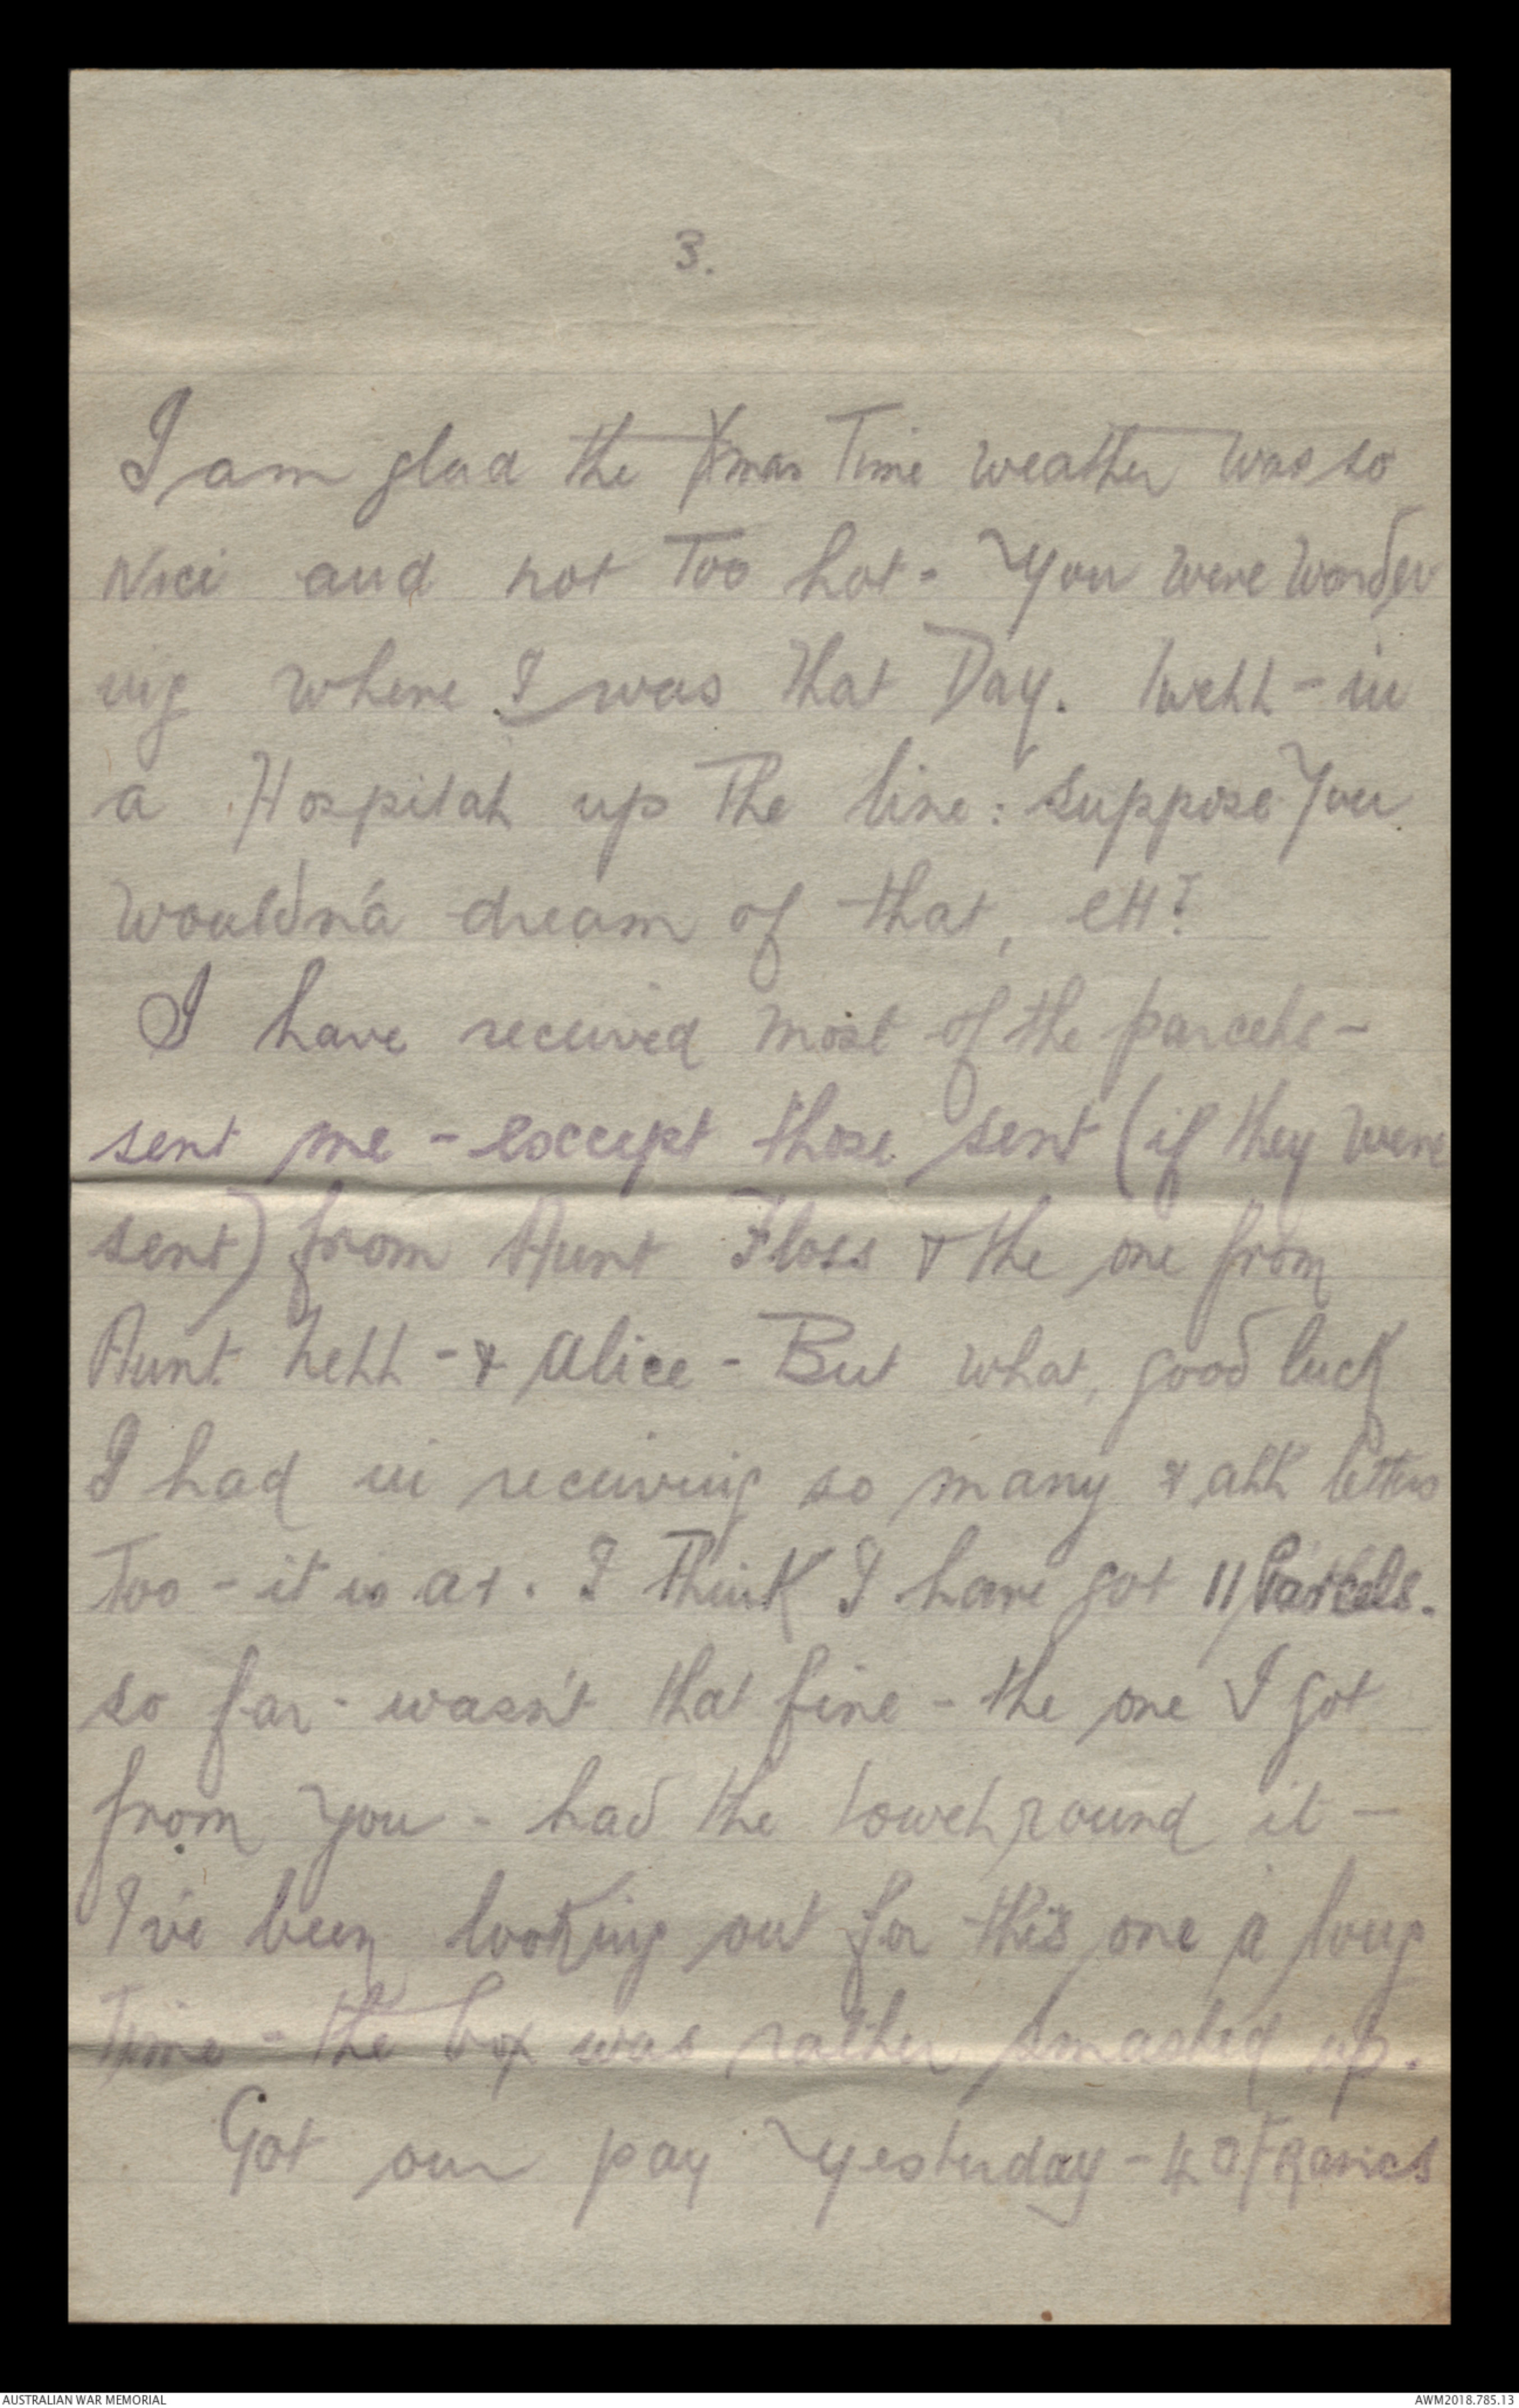 3.
I am glad the Xmas Time weather was so
Nice and not Too hot - You were wonder
ing where I was that Day. Well - in
a Hospital up The line: suppose You
wouldn'a dream of that, eH?
I have received most of the parcels -
sent me - except those sent (if they were
sent) from Aunt Floss & the one from
Aunt Nell - & Alice - But what, good luck
I had in receiving so many & all letters
Too - it is as. I Think I have got 11 Parcels.
so far - wasn't that fine - the one I got
from you - had the towel round it -
I've been looking out for this one a long
Time - the box was rather smashed up.
Got our pay Yesterday - 40 Francs
AUSTRALIAN WAR MEMORIAL
AWM2018.785.13